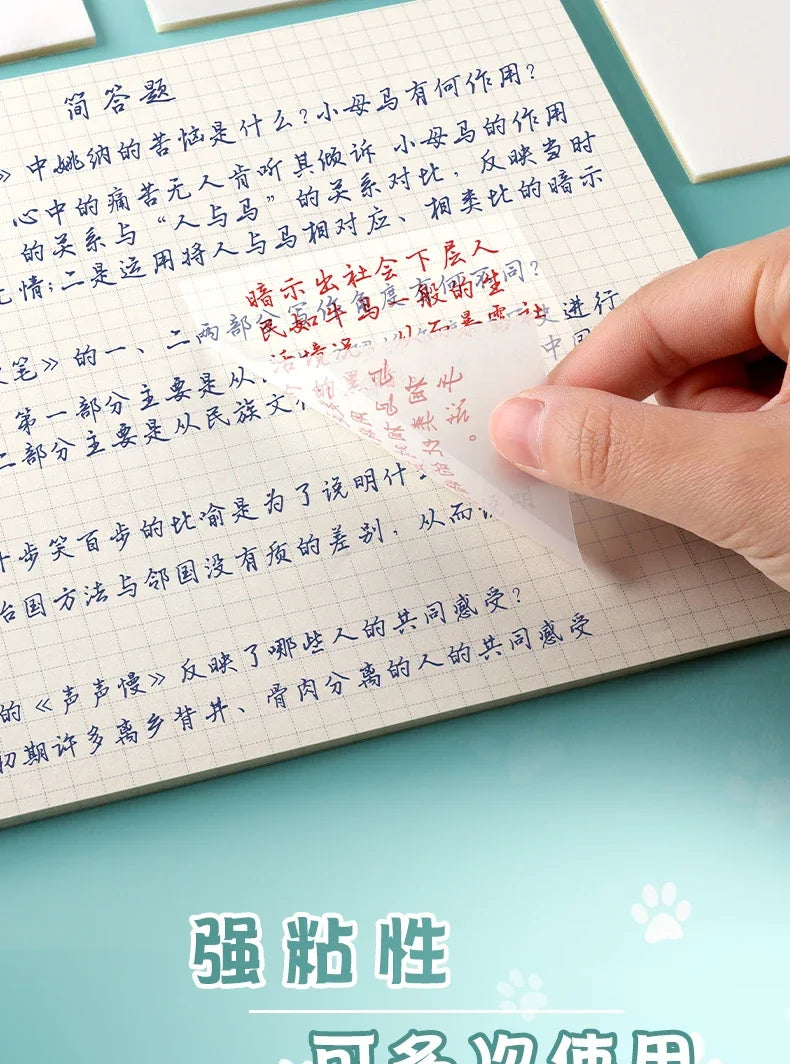 简答题
》中姚纳的苦恼是什么？小母马有何作用？
心中的痛苦无人肯听其倾诉 小母马的作用
的关系与“人与马”的关系对比，反映当时
无情；二是运用将人与马相对应、相类比的暗示
暗示出社会下层人
民如牛马一般的生
活境况，从而暴露社
笔》的一、二两部分写作角度有何不同？
第一部分主要是从
进行
二部分主要是从民族文
中国
步笑百步的比喻是为了说明什
治国方法与邻国没有质的差别，从而说明
的《声声慢》反映了哪些人的共同感受？
初期许多离乡背井、骨肉分离的人的共同感受
强粘性
可多次使用